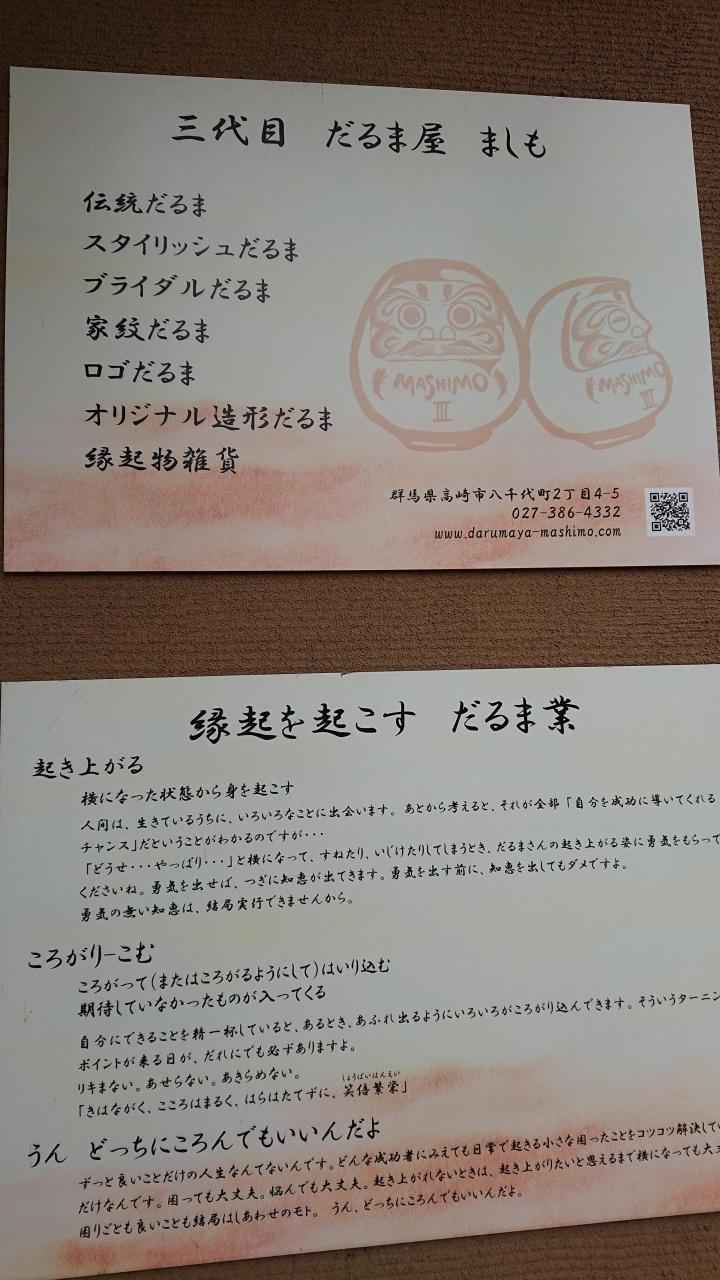 三代目 だるま屋 ましも
伝統だるま
スタイリッシュだるま
ブライダルだるま
家紋だるま
ロゴだるま
オリジナル造形だるま
縁起物雑貨
MASHIMO
III
MASHIMO
III
群馬県高崎市八千代町2丁目4-5
027-386-4332
www.darumaya-mashimo.com
縁起を起こす だるま業
起き上がる
横になった状態から身を起こす
人間は、生きているうちに、いろいろなことに出会います。あとから考えると、それが全部「自分を成功に導いてくれる
チャンス」だということがわかるのですが・・・
「どうせ・・・やっぱり・・・」と横になって、すねたり、いじけたりしてしまうとき、だるまさんの起き上がる姿に勇気をもらって
くださいね。勇気を出せば、つぎに知恵が出てきます。勇気を出す前に、知恵を出してもダメですよ。
勇気の無い知恵は、結局実行できませんから。
ころがりーこむ
ころがって(またはころがるようにして)はいり込む
期待していなかったものが入ってくる
自分にできることを精一杯していると、あるとき、あふれ出るようにいろいろがころがり込んできます。そういうターニン
ポイントが来る日が、だれにでも必ずありますよ。
リキまない。あせらない。あきらめない。
しょうばいはんえい
「きはながく、こころはまるく、はらはたてずに、笑倍繁栄」
うん どっちにころんでもいいんだよ
ずっと良いことだけの人生なんてないんです。どんな成功者にみえても日常で起きる小さな困ったことをコツコツ解決してい
だけなんです。困っても大丈夫。悩んでも大丈夫。起き上がれないときは、起き上がりたいと思えるまで横になっても大丈
困りごとも良いことも結局はしあわせのモト。 うん、どっちにころんでもいいんだよ。